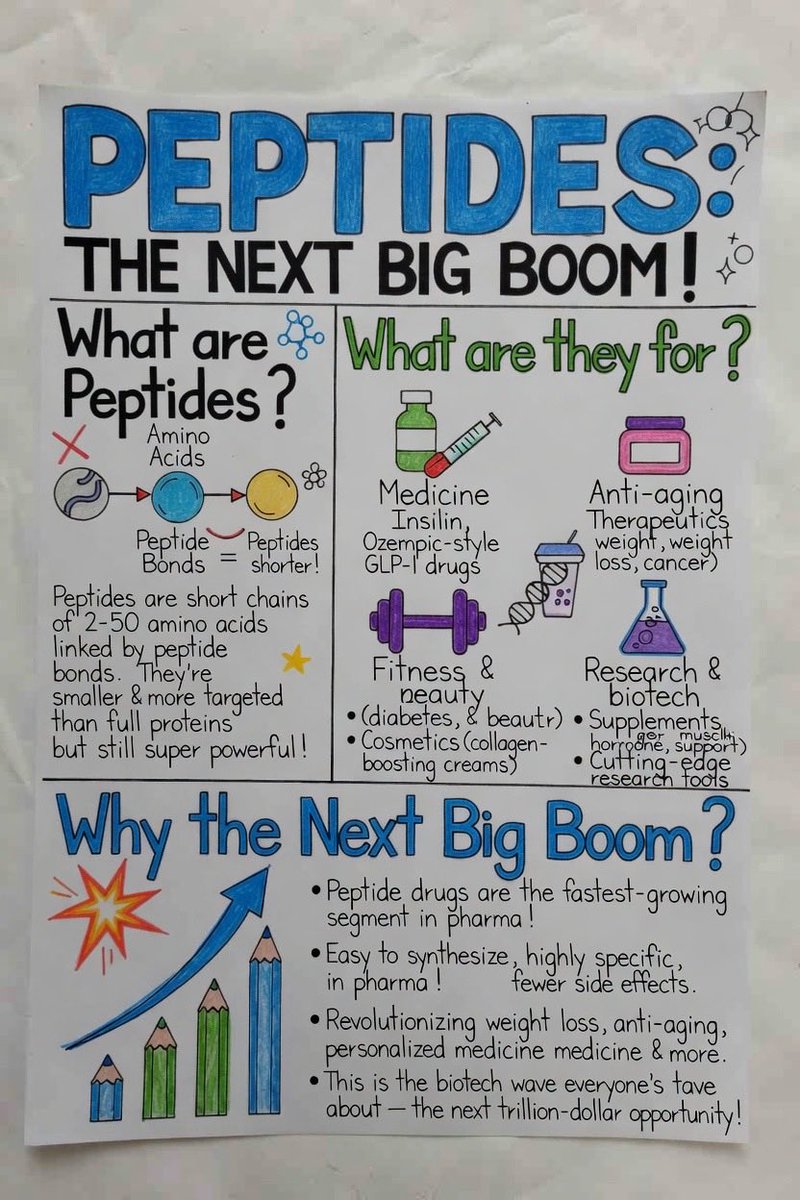 PEPTIDES:
THE NEXT BIG BOOM!
What are
Peptides?
Amino
Acids
Peptide
Bonds
=
Peptides
shorter!
Peptides are short chains
of 2-50 amino acids
linked by peptide
bonds. They're
smaller & more targeted
than full proteins
but still super powerful!
What are they for?
Medicine
Insilin,
Ozempic-style
GLP-1 drugs
Anti-aging
Therapeutics
weight, weight
loss, cancer)
Fitness &
neauty
• (diabetes, & beautr)
• Cosmetics (collagen-
boosting creams)
Research &
biotech
• Supplements
horrodne, support)
• Cutting-edge
research tools
Why the Next Big Boom?
• Peptide drugs are the fastest-growing
segment in pharma!
• Easy to synthesize, highly specific,
in pharma! fewer side effects.
• Revolutionizing weight loss, anti-aging,
personalized medicine medicine & more.
• This is the biotech wave everyone's tave
about — the next trillion-dollar opportunity!